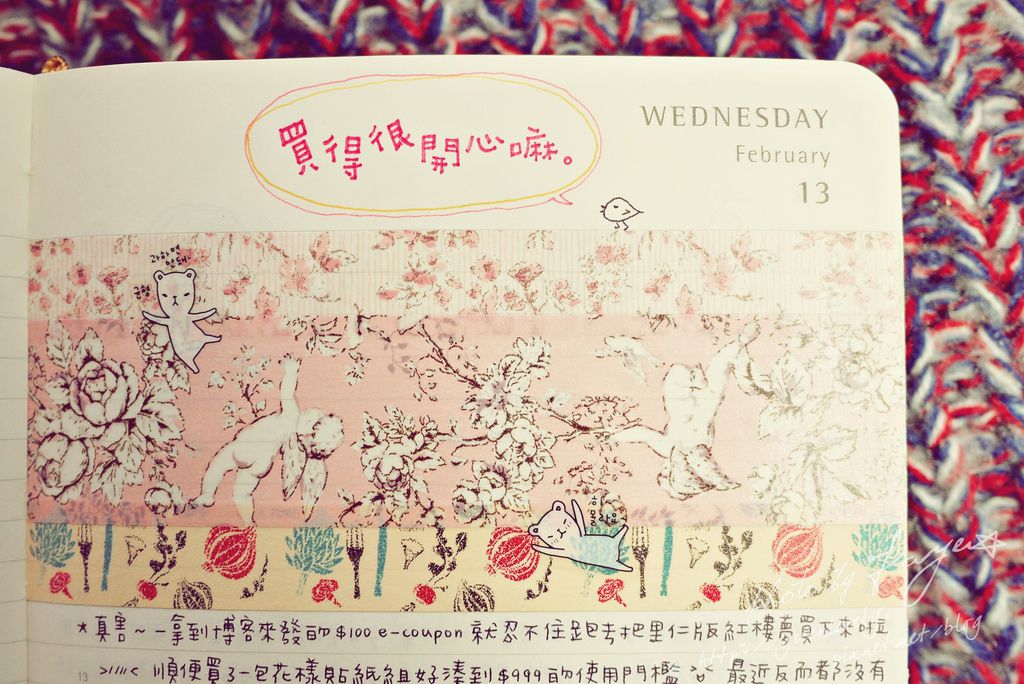 買得很開心嘛。
WEDNESDAY
February
13
★真害～一拿到博客來發的$100 e-coupon 就忍不住跑去把里仁版紅樓夢買下來啦
>////< 順便買了一包花樣貼紙組好湊到$999的使用門檻 最近反而都沒有
13